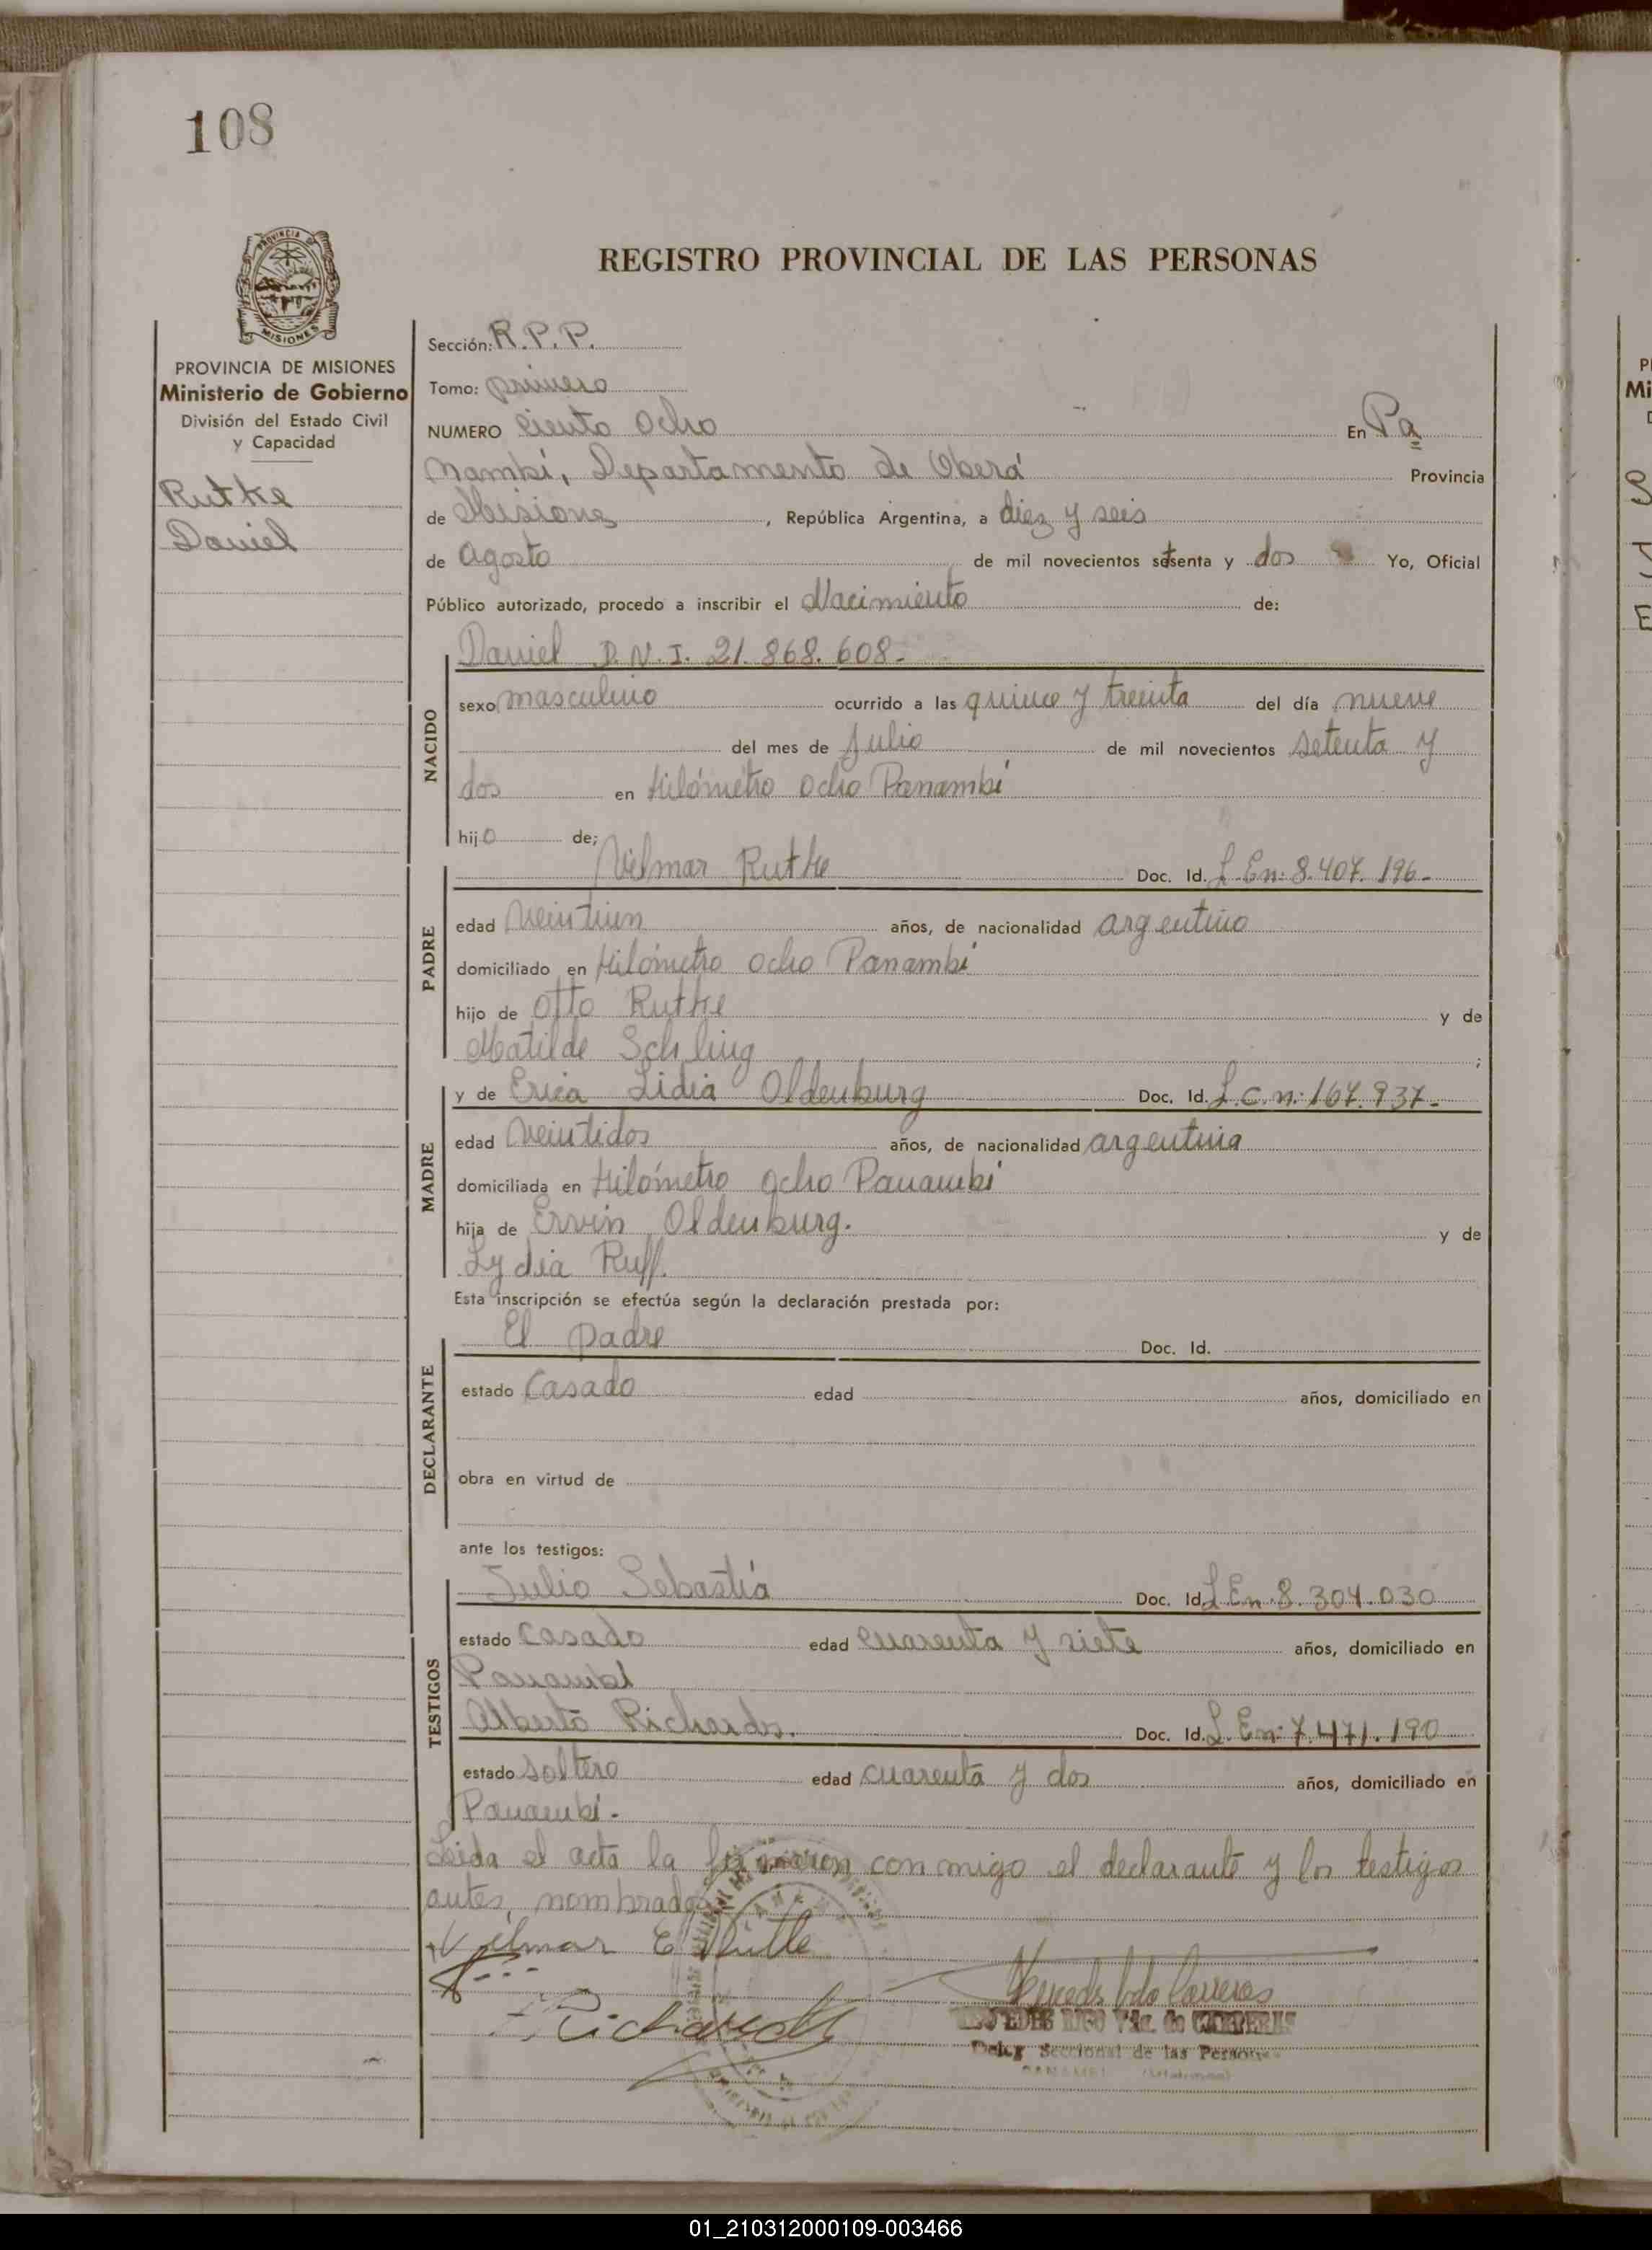 108
PROVINCIA DE
MISIONES
REGISTRO PROVINCIAL DE LAS PERSONAS
PROVINCIA DE MISIONES
Ministerio de Gobierno
División del Estado Civil
y Capacidad
Rutke
Daniel
Sección: R.P.P.
Tomo: primero
NUMERO ciento ocho En Pa
nambí, Departamento de Oberá Provincia
de Misiones, República Argentina, a diez y seis
de Agosto de mil novecientos setenta y dos Yo, Oficial
Público autorizado, procedo a inscribir el Nacimiento de:
NACIDO
Daniel D.N.I. 21.868.608.-
sexo masculino ocurrido a las quince y treinta del día nueve
del mes de Julio de mil novecientos setenta y
dos en Kilómetro ocho Panambí
hijo de;
PADRE
Vilmar Rutke Doc. Id. L.En: 8.407.196.-
edad veintiun años, de nacionalidad argentino
domiciliado en Kilómetro ocho Panambí
hijo de Otto Rutke y de
Matilde Schling ;
MADRE
y de Erica Lidia Oldenburg Doc. Id. L.C.n: 167.937.-
edad veintidos años, de nacionalidad argentina
domiciliada en Kilómetro ocho Panambí
hija de Ervin Oldenburg. y de
Lydia Ruff.
Esta inscripción se efectúa según la declaración prestada por:
DECLARANTE
El padre Doc. Id.
estado Casado edad años, domiciliado en
obra en virtud de
ante los testigos:
TESTIGOS
Julio Sebastiá Doc. Id. L.En: 8.304.030
estado casado edad cuarenta y siete años, domiciliado en
Panambí
Alberto Richards. Doc. Id. L.En: 7.471.190
estado soltero edad cuarenta y dos años, domiciliado en
Panambí.-
Leida el acta la firmaron conmigo el declarante y los testigos
antes nombrados
Vilmar E Rutke
Vda. de
Seccional de las Personas
PANAMBI
01_210312000109-003466